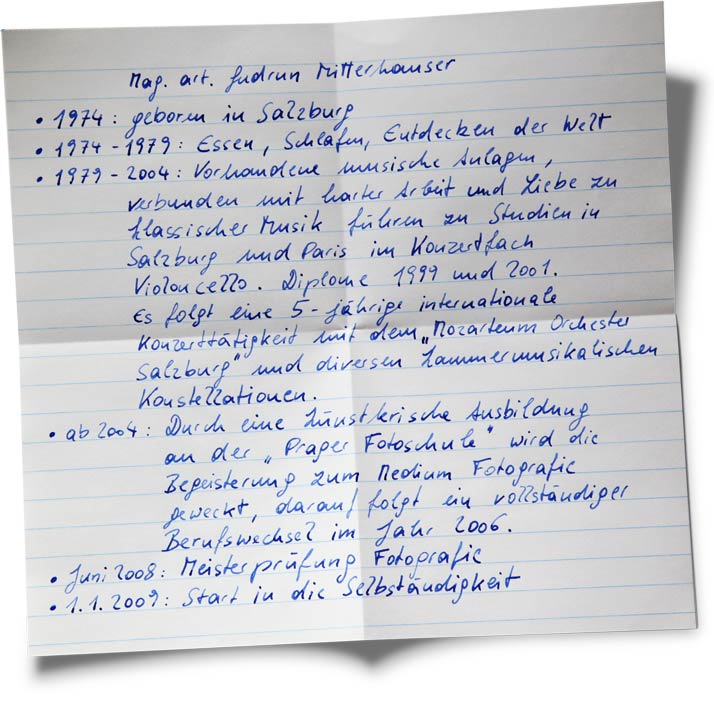 Mag. art. Gudrun Mitterhauser
• 1974: geboren in Salzburg
• 1974-1979: Essen, Schlafen, Entdecken der Welt
• 1979-2004: Vorhandene musische Anlagen,
verbunden mit harter Arbeit und Liebe zu
klassischer Musik führen zu Studien in
Salzburg und Paris im Konzertfach
Violoncello. Diplome 1999 und 2001.
Es folgt eine 5-jährige internationale
Konzerttätigkeit mit dem „Mozarteum Orchester
Salzburg" und diversen kammermusikalischen
Konstellationen.
• ab 2004: Durch eine künstlerische Ausbildung
an der „Prager Fotoschule" wird die
Begeisterung zum Medium Fotografie
geweckt, darauf folgt ein vollständiger
Berufswechsel im Jahr 2006.
• Juni 2008: Meisterprüfung Fotografie
• 1.1.2009: Start in die Selbständigkeit